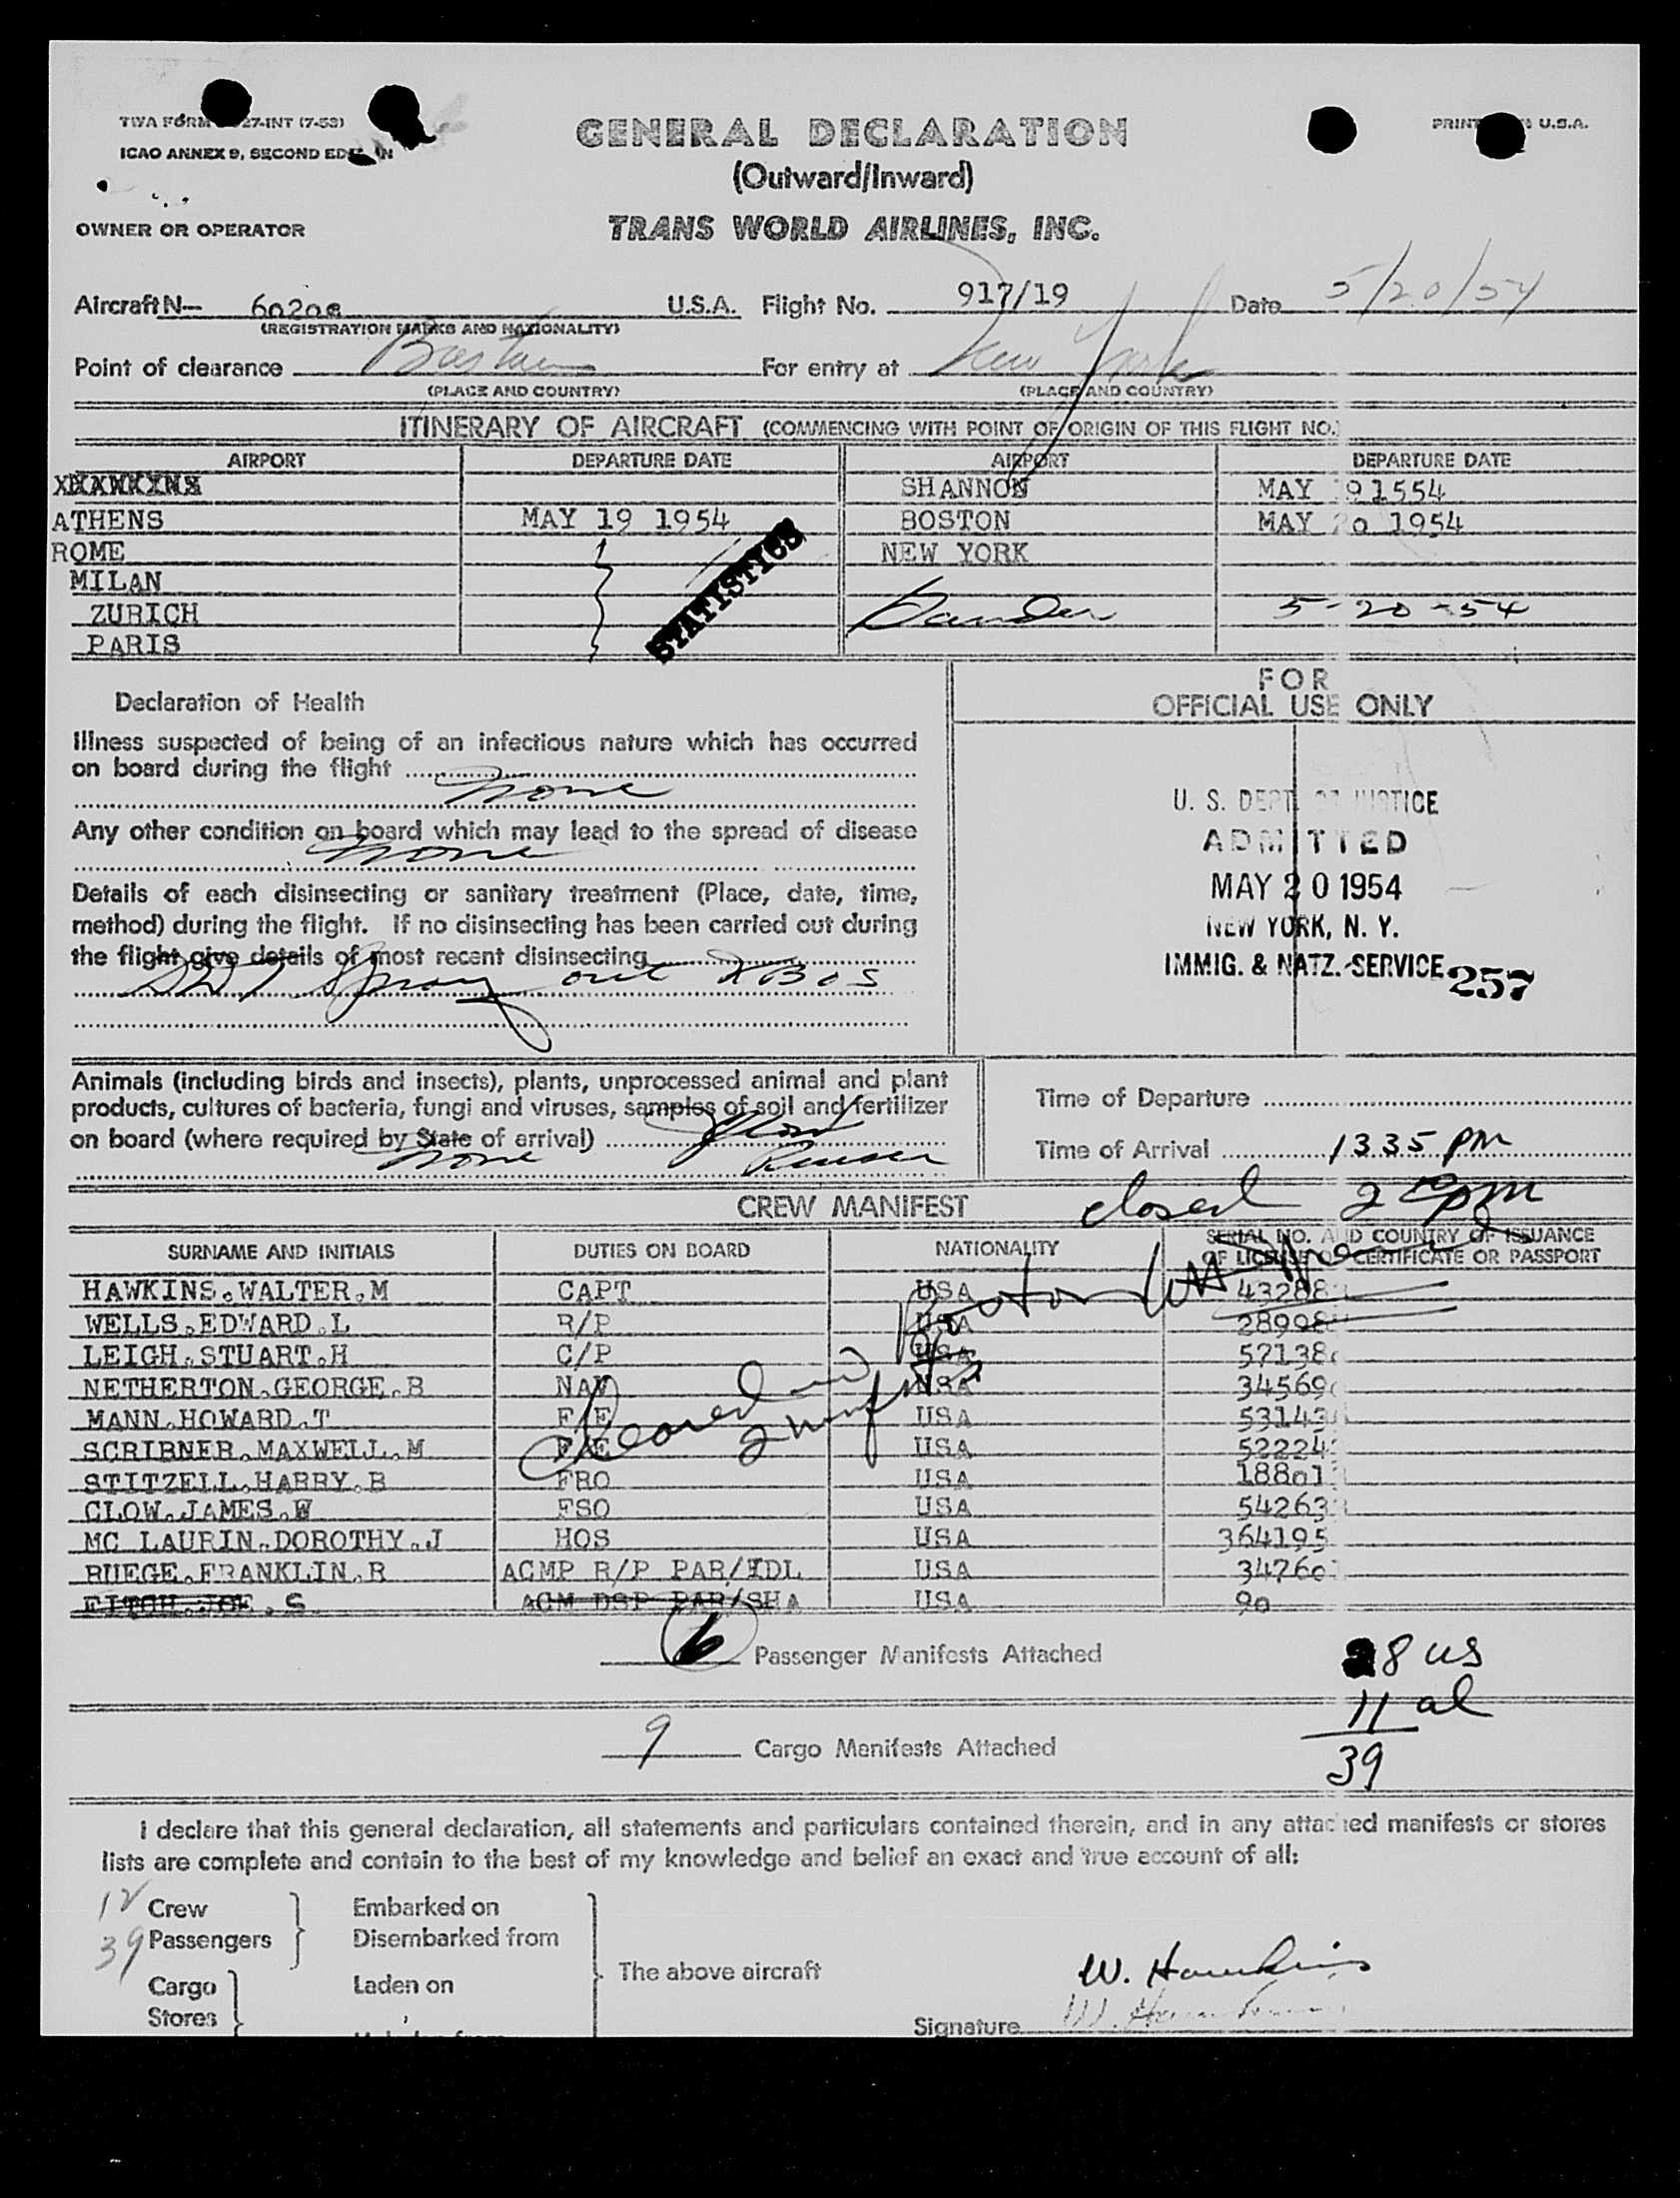 TWA FORM 27-INT (7-53)
ICAO ANNEX 9, SECOND
PRINT U.S.A.
GENERAL DECLARATION
(Outward/Inward)
OWNER OR OPERATOR
TRANS WORLD AIRLINES, INC.
Aircraft N-- 6020C U.S.A. Flight No. 917/19 Date 5/20/54
(REGISTRATION MARKS AND NATIONALITY)
Point of clearance Boston For entry at New York
(PLACE AND COUNTRY) (PLACE AND COUNTRY)
ITINERARY OF AIRCRAFT (COMMENCING WITH POINT OF ORIGIN OF THIS FLIGHT NO.)
AIRPORT DEPARTURE DATE AIRPORT DEPARTURE DATE
SHANNON MAY 91554
ATHENS MAY 19 1954 BOSTON MAY 20 1954
ROME NEW YORK
MILAN
ZURICH 5-20-54
PARIS
STATISTICS
Declaration of Health
FOR
OFFICIAL USE ONLY
Illness suspected of being of an infectious nature which has occurred
on board during the flight
None
Any other condition on board which may lead to the spread of disease
None
Details of each disinsecting or sanitary treatment (Place, date, time,
method) during the flight. If no disinsecting has been carried out during
the flight give details of most recent disinsecting
DDT Spray out BOS
U. S. DEPT. OF JUSTICE
ADMITTED
MAY 20 1954
NEW YORK, N. Y.
IMMIG. & NATZ. SERVICE 257
Animals (including birds and insects), plants, unprocessed animal and plant
products, cultures of bacteria, fungi and viruses, samples of soil and fertilizer
on board (where required by State of arrival)
None
Time of Departure
Time of Arrival 1335 pm
CREW MANIFEST closed 2 pm
SURNAME AND INITIALS DUTIES ON BOARD NATIONALITY SERIAL NO. AND COUNTRY OF ISSUANCE
OF LICENSE OR CERTIFICATE OR PASSPORT
HAWKINS.WALTER.M CAPT USA 43288
WELLS.EDWARD.L R/P USA 28998
LEIGH.STUART.H C/P USA 57138
NETHERTON.GEORGE.B NAV USA 34569
MANN.HOWARD.T F/E USA 53143
SCRIBNER.MAXWELL.M F/E USA 52224
STITZELL.HARRY.B FRO USA 18801
CLOW.JAMES.W FSO USA 54263
MC LAURIN.DOROTHY.J HOS USA 364195
RUEGE.FRANKLIN.R ACMP R/P PAR/IDL USA 34760
FITCH.JOE.S ACM DSP PAR/SHA USA 90
Cleared in Boston
6 Passenger Manifests Attached
28 us
11 al
39
9 Cargo Manifests Attached
I declare that this general declaration, all statements and particulars contained therein, and in any attached manifests or stores
lists are complete and contain to the best of my knowledge and belief an exact and true account of all:
12 Crew Embarked on
39 Passengers Disembarked from
Cargo Laden on The above aircraft W. Hawkins
Stores
Signature W. Hawkins